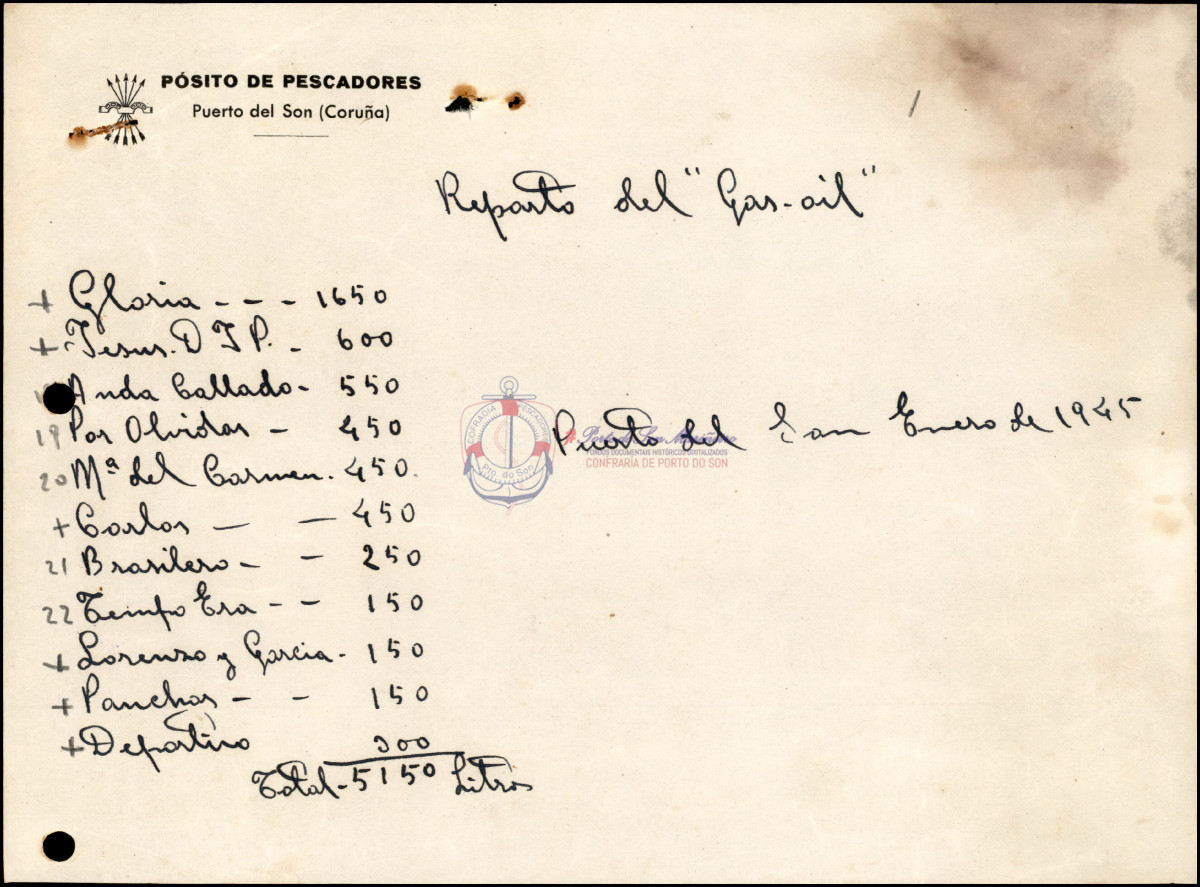 PÓSITO DE PESCADORES
Puerto del Son (Coruña)
/
Reparto del "Gas-oil"
+ Gloria - - - 1650
+ Jesus. D J P. - 600
Anda Callado - 550
19 Por Olvidar - 450
20 Mª del Carmen. 450.
+ Carlos — — 450
21 Brasilero - - 250
22 Tempo Era - - 150
+ Lorenzo y Garcia - 150
+ Panchos - - 150
+ Deportivo 300
Total - 5150 Litros
Puerto del Son Enero de 1945
COFRADIA PESCADORES
Pto. do Son
#Porto do Son Mariñeiro
FONDOS DOCUMENTAIS HISTÓRICOS DIXITALIZADOS
CONFRARÍA DE PORTO DO SON